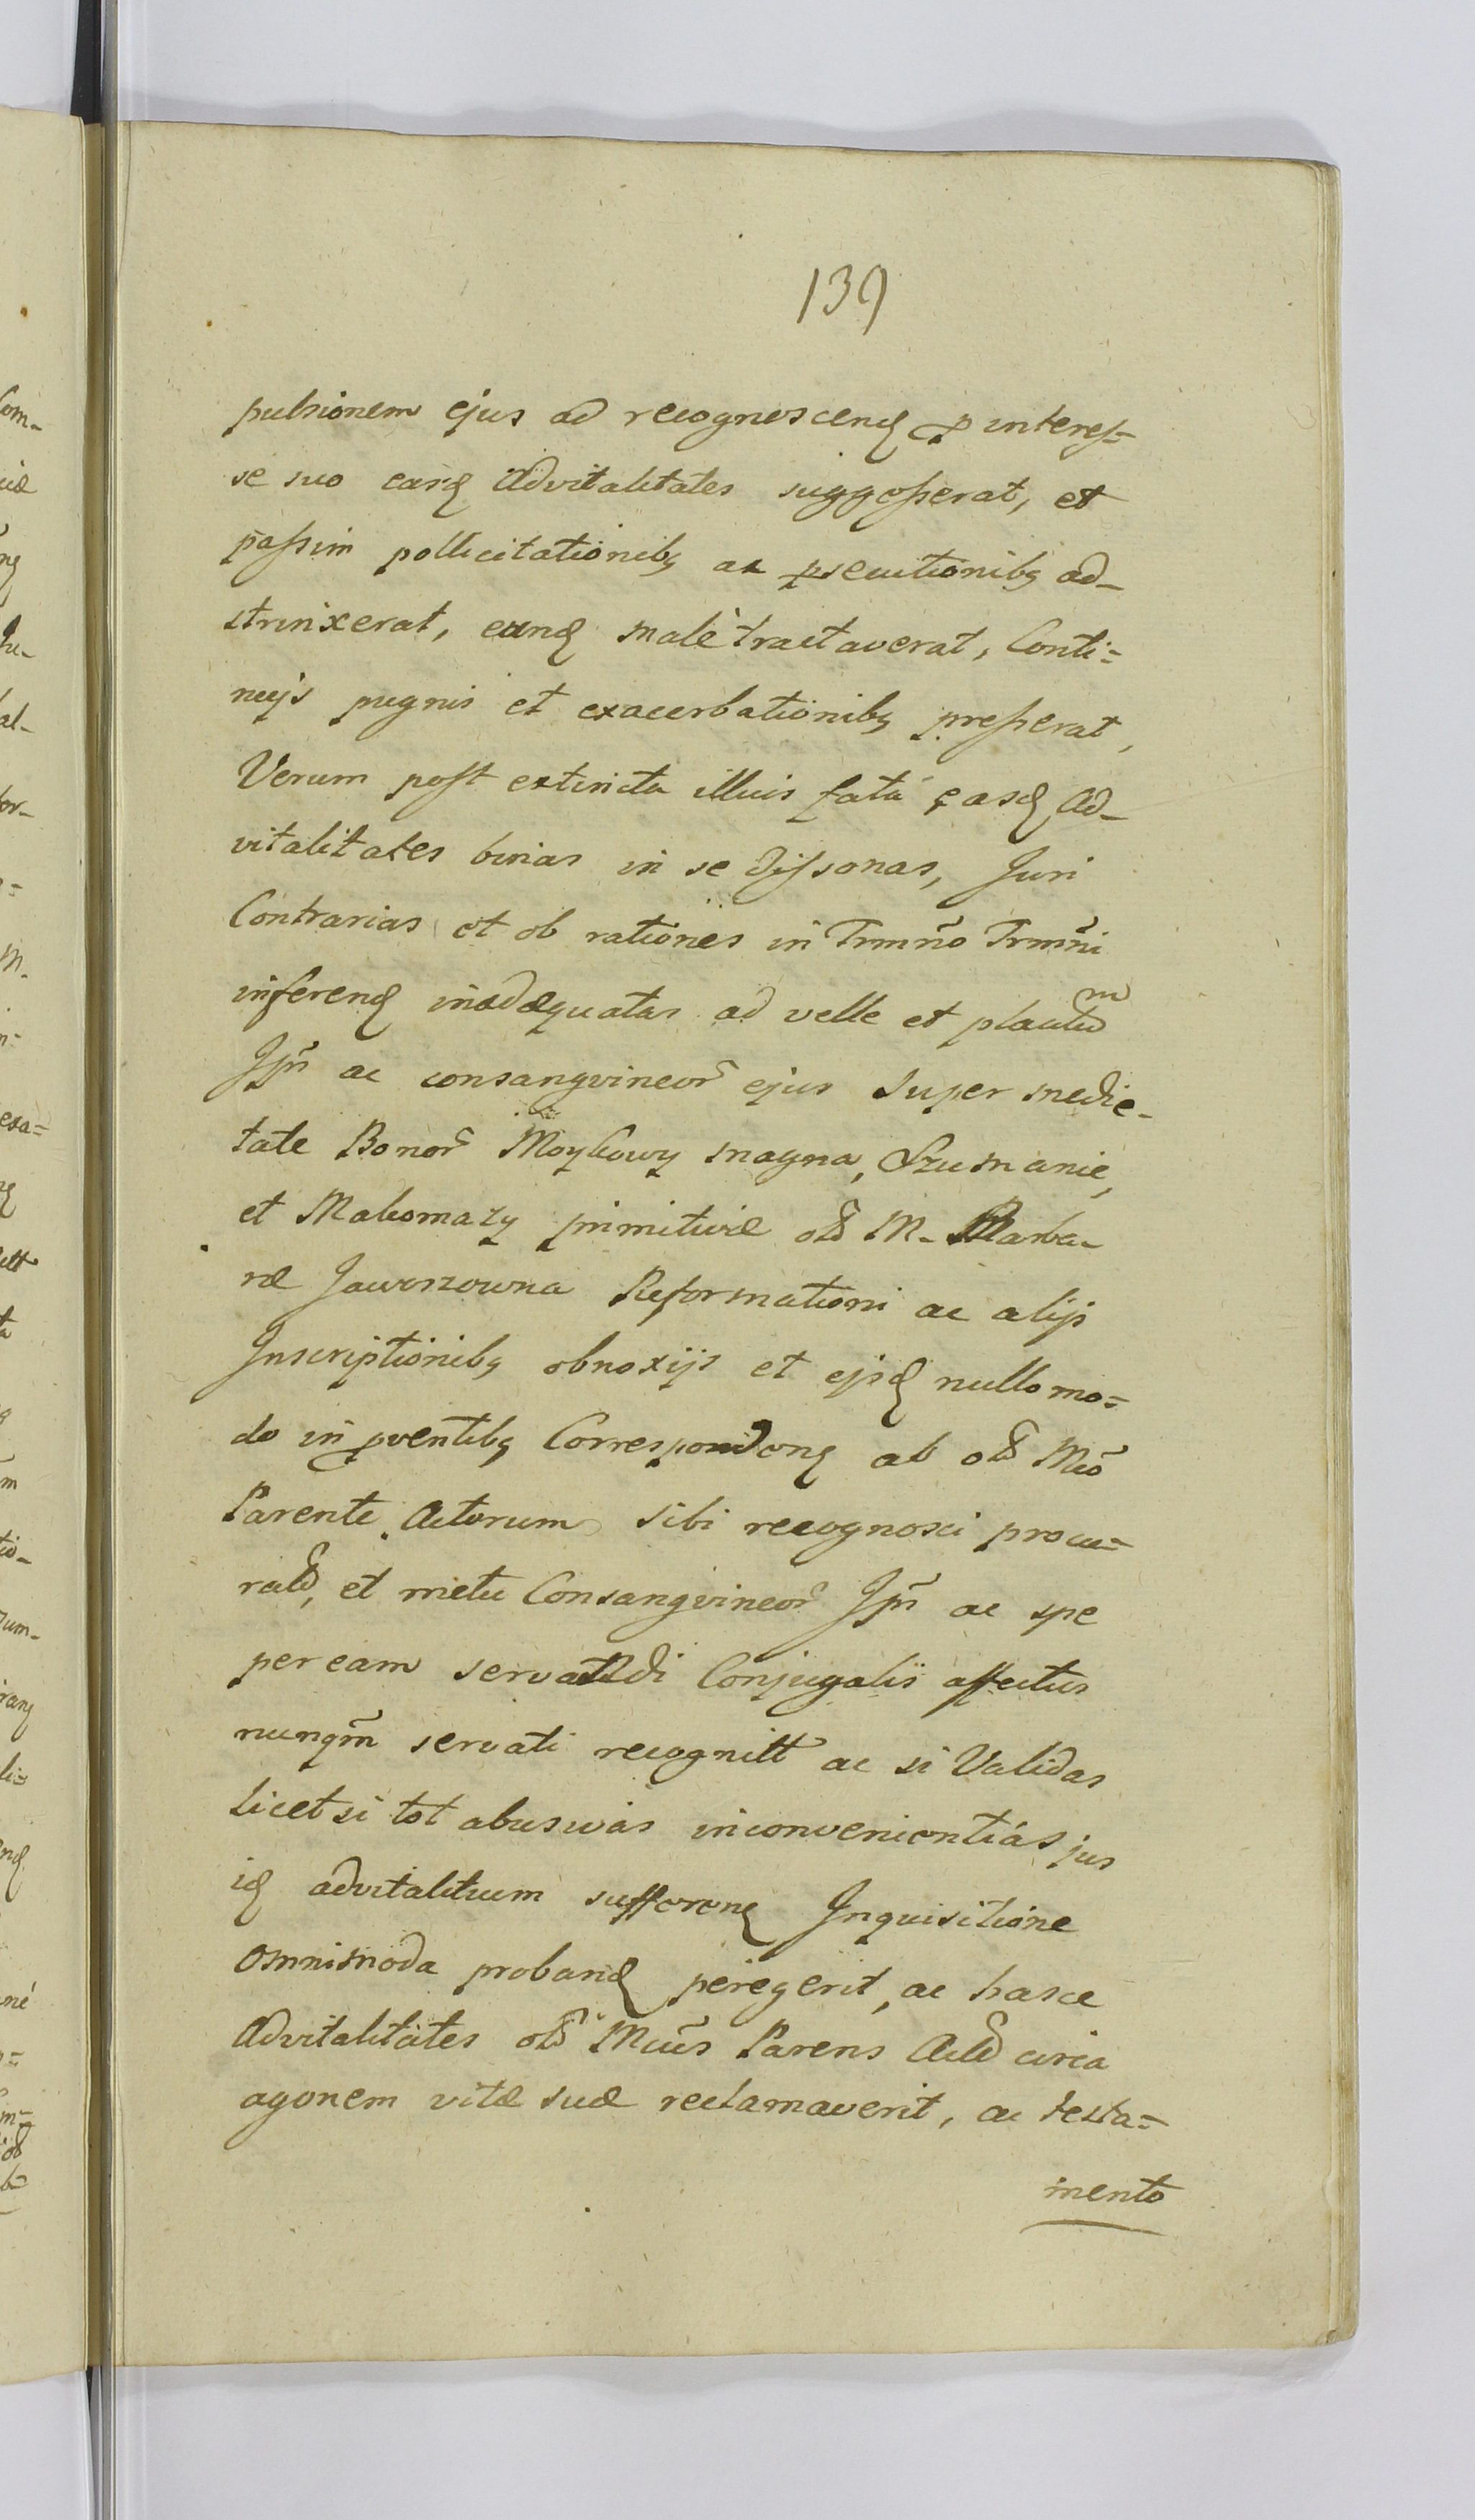 139
pulsionem ejus ad recognoscenḍ p interes=
se suo easḍ Advitalitates suggesserat, et
passim pollicitationibꝫ ac psecutionibꝫ ad-
strinxerat, eunḍ malè tractaverat, Conti=
nuijs pugnis et exacerbationibꝫ presserat,
Verum post extincta illius fata easḍ Ad-
vitalitates binas in se dissonas, Juri
Contrarias et ob rationes in Trmño Trmñi
inferenḍ inadæquatas ad velle et placitum
Jpñ ac consangvineor̃ ejus super medie-
tate Bonor̃ Moykowy magna, Szumanie,
et Makomazy primitivæ olĩ M. Barba-
ræ Jawoszowna Reformationi ac alijs
Inscriptionibꝫ obnoxijs et ejsḍ nullo mo=
do in pventibꝫ Correspondenḍ ab olĩ Mcõ
Parente Actorum sibi recognosci procu=
rat̃, et metu Consangvineor̃ Jpñ ac spe
per eam servandi Conjugalis affectus
nunqm̃ servati recognitt ac si Validas
licet si tot abusivas inconvenientias jus
iḍ advitalitium sufferenḍ Inquisitione
omnimoda probanḍ peregerit, ac hasce
Advitalitates olĩ Mcũs Parens Act̃ circa
agonem vitæ suæ reclamaverit, ac testa=
mento